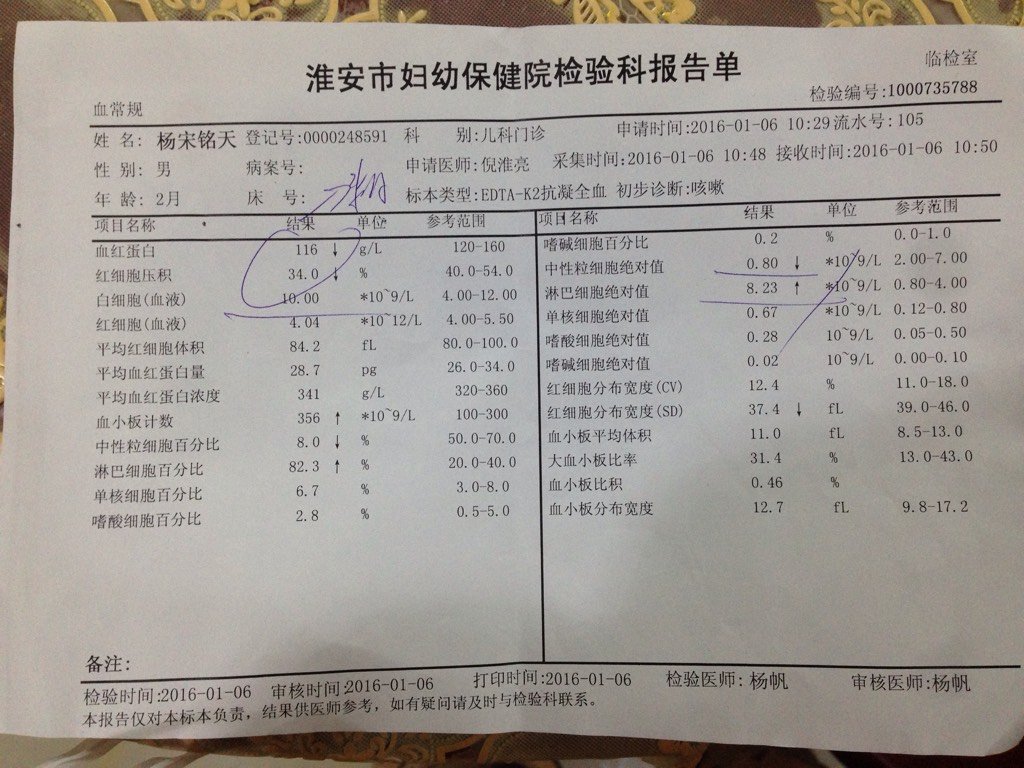 淮安市妇幼保健院检验科报告单
临检室
血常规
检验编号:1000735788
姓 名: 杨宋铭天 登记号:0000248591 科 别:儿科门诊 申请时间:2016-01-06 10:29 流水号:105
性 别: 男 病案号: 申请医师:倪淮亮 采集时间:2016-01-06 10:48 接收时间:2016-01-06 10:50
年 龄: 2月 床 号: 标本类型:EDTA-K2抗凝全血 初步诊断:咳嗽
项目名称 结果 单位 参考范围
血红蛋白 116 ↓ g/L 120-160
红细胞压积 34.0 ↓ % 40.0-54.0
白细胞(血液) 10.00 *10~9/L 4.00-12.00
红细胞(血液) 4.04 *10~12/L 4.00-5.50
平均红细胞体积 84.2 fL 80.0-100.0
平均血红蛋白量 28.7 pg 26.0-34.0
平均血红蛋白浓度 341 g/L 320-360
血小板计数 356 ↑ *10~9/L 100-300
中性粒细胞百分比 8.0 ↓ % 50.0-70.0
淋巴细胞百分比 82.3 ↑ % 20.0-40.0
单核细胞百分比 6.7 % 3.0-8.0
嗜酸细胞百分比 2.8 % 0.5-5.0
项目名称 结果 单位 参考范围
嗜碱细胞百分比 0.2 % 0.0-1.0
中性粒细胞绝对值 0.80 ↓ *10~9/L 2.00-7.00
淋巴细胞绝对值 8.23 ↑ *10~9/L 0.80-4.00
单核细胞绝对值 0.67 *10~9/L 0.12-0.80
嗜酸细胞绝对值 0.28 10~9/L 0.05-0.50
嗜碱细胞绝对值 0.02 10~9/L 0.00-0.10
红细胞分布宽度(CV) 12.4 % 11.0-18.0
红细胞分布宽度(SD) 37.4 ↓ fL 39.0-46.0
血小板平均体积 11.0 fL 8.5-13.0
大血小板比率 31.4 % 13.0-43.0
血小板比积 0.46 %
血小板分布宽度 12.7 fL 9.8-17.2
备注:
检验时间:2016-01-06 审核时间:2016-01-06 打印时间:2016-01-06 检验医师: 杨帆 审核医师:杨帆
本报告仅对本标本负责，结果供医师参考，如有疑问请及时与检验科联系。